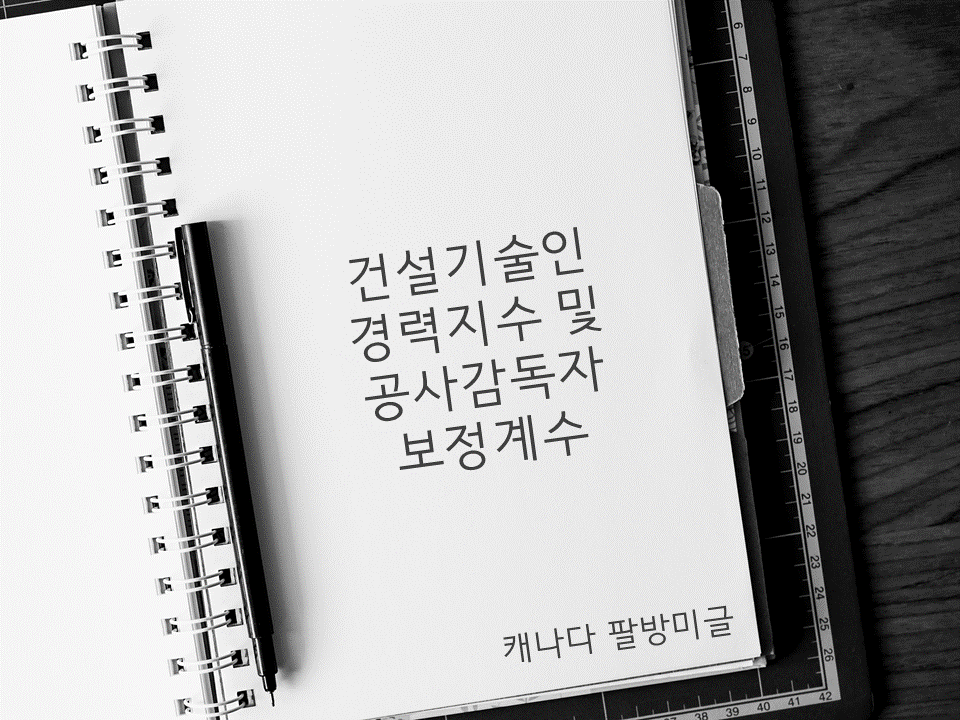 건설기술인
경력지수 및
공사감독자
보정계수
캐나다 팔방미글
6
7
8
9
10
11
12
13
14
15
16
17
18
19
20
21
22
23
24
25
26
37 38 39 40 41 42